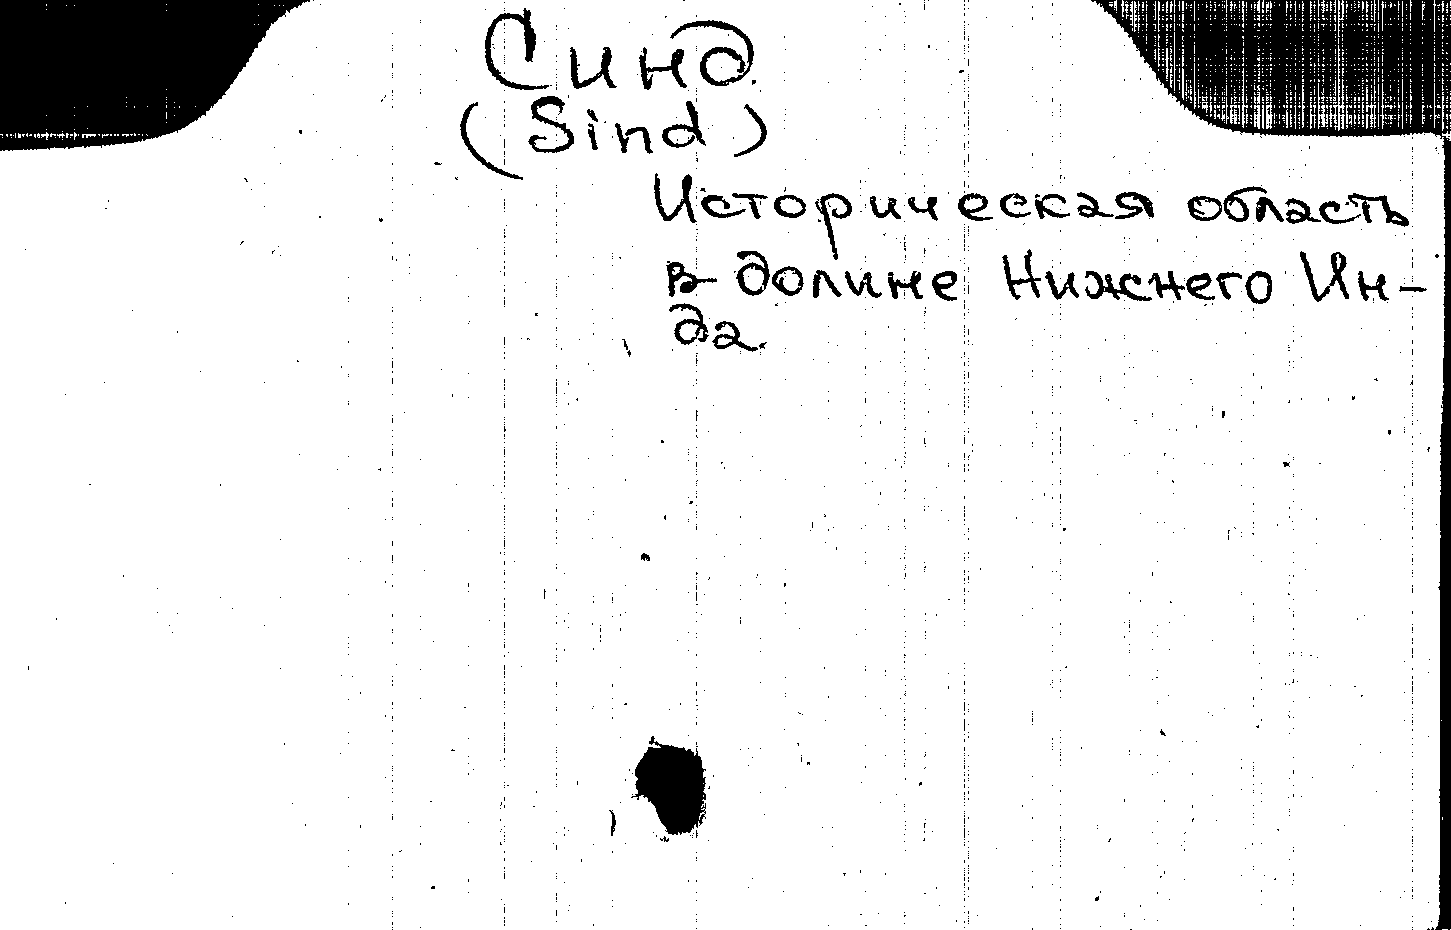 Синд
(Sind)
Историческая область
в долине Нижнего Ин-
да.